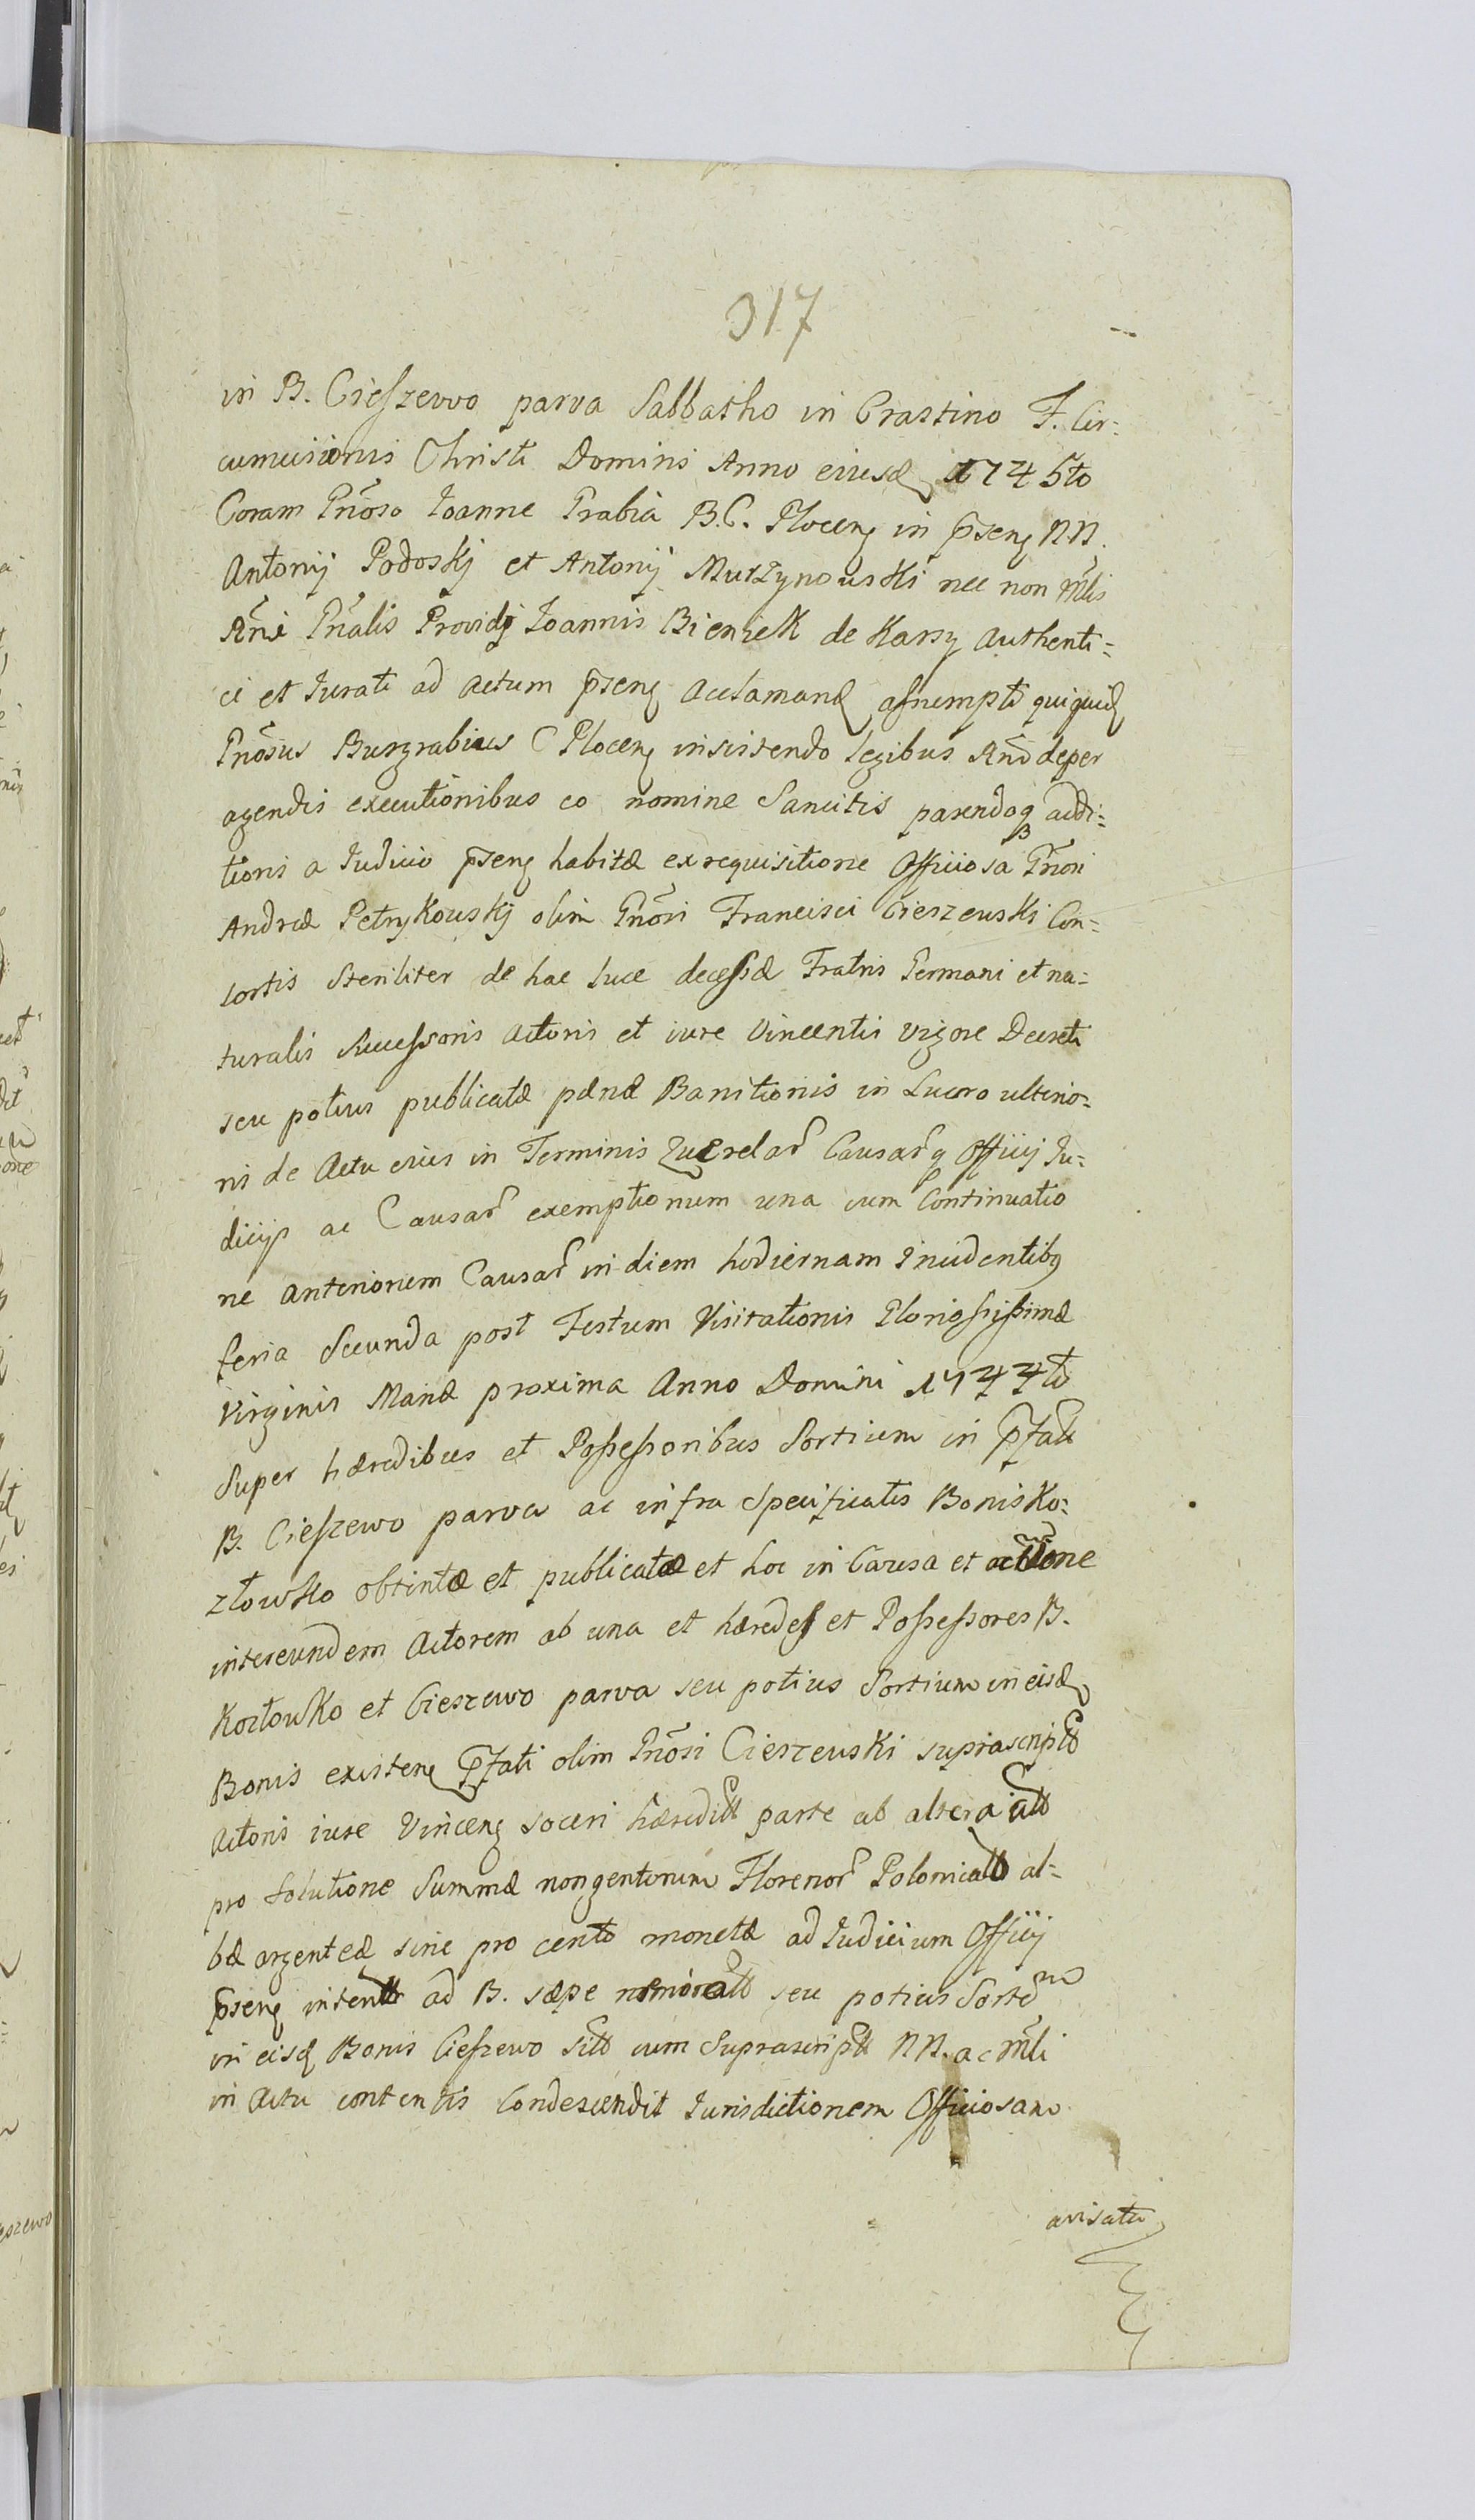 317
in B. Cieszewo parva Sabbatho in Crastino F. Cir=
cumcisionis Christi Domini Anno eiusd 1745to
Coram Gñoso Ioanne Grabia B.C. Plocen in pñsen NN.
Antonij Podoskj et Antonij Murzynowski nec non Mlis
Rñi Gñalis Providj Ioannis Bieniek de Karsy Authenti=
ci et Iurati ad Actum pñsen Acclamand assumpti quiquid
Gñosus Burgrabius C Plocen insistendo legibus Rñi de per
agendis executionibus eo nomine Sancitis parendoq addi=
tioni a Iudicio pñsen habitæ ex requisitione Officiosa Gñosi
Andreæ Petrykowskj olim Gñosi Francisci Cieszewski Con=
sortis steriliter de hac luce decessæ Fratris Germani et na=
turalis Successoris Actoris et iure Vincentis vigore Decreti
seu potius publicatæ pænæ Banitionis in Lucro ulterio=
ri de Actu eius in Terminis Querelar Causarq Officij Iu=
dicijs ac Causar exemptionum una cum Continuatio
ne anteriorum Causar in diem hodiernam Incidentibq
feria Secunda post Festum Visitationis Gloriosissimæ
Virginis Mariæ proxima Anno Domini 1744to
Super hæredibus et Possessoribus Sortium in pfati
B. Cieszewo parva ac infra specificatis Bonis Ko=
złowko obtintæ et publicatæ et hoc in Causa et actione
inter eundem Actorem ab una et hæredes et Possessores B.
Kozłowko et Cieszewo parva seu potius Sortium in eisd
Bonis existen pfati olim Gñosi Cieszewski suprascriptt
Actoris iure Vincen soceri hæreditt parte ab altera att
pro solutione Summæ nongentorum Florenor Polonicatt al=
bæ argenteæ sine pro cento monetæ ad Iudicium Officij
pñsen intentt ad B. sæpe memoratt seu potius Sortem
in eisd Bonis Cieszewo sitt cum Suprascriptt NN. ac Mli
in Actu contentis Condescendit Iurisdictionem Officiosam
avisatu